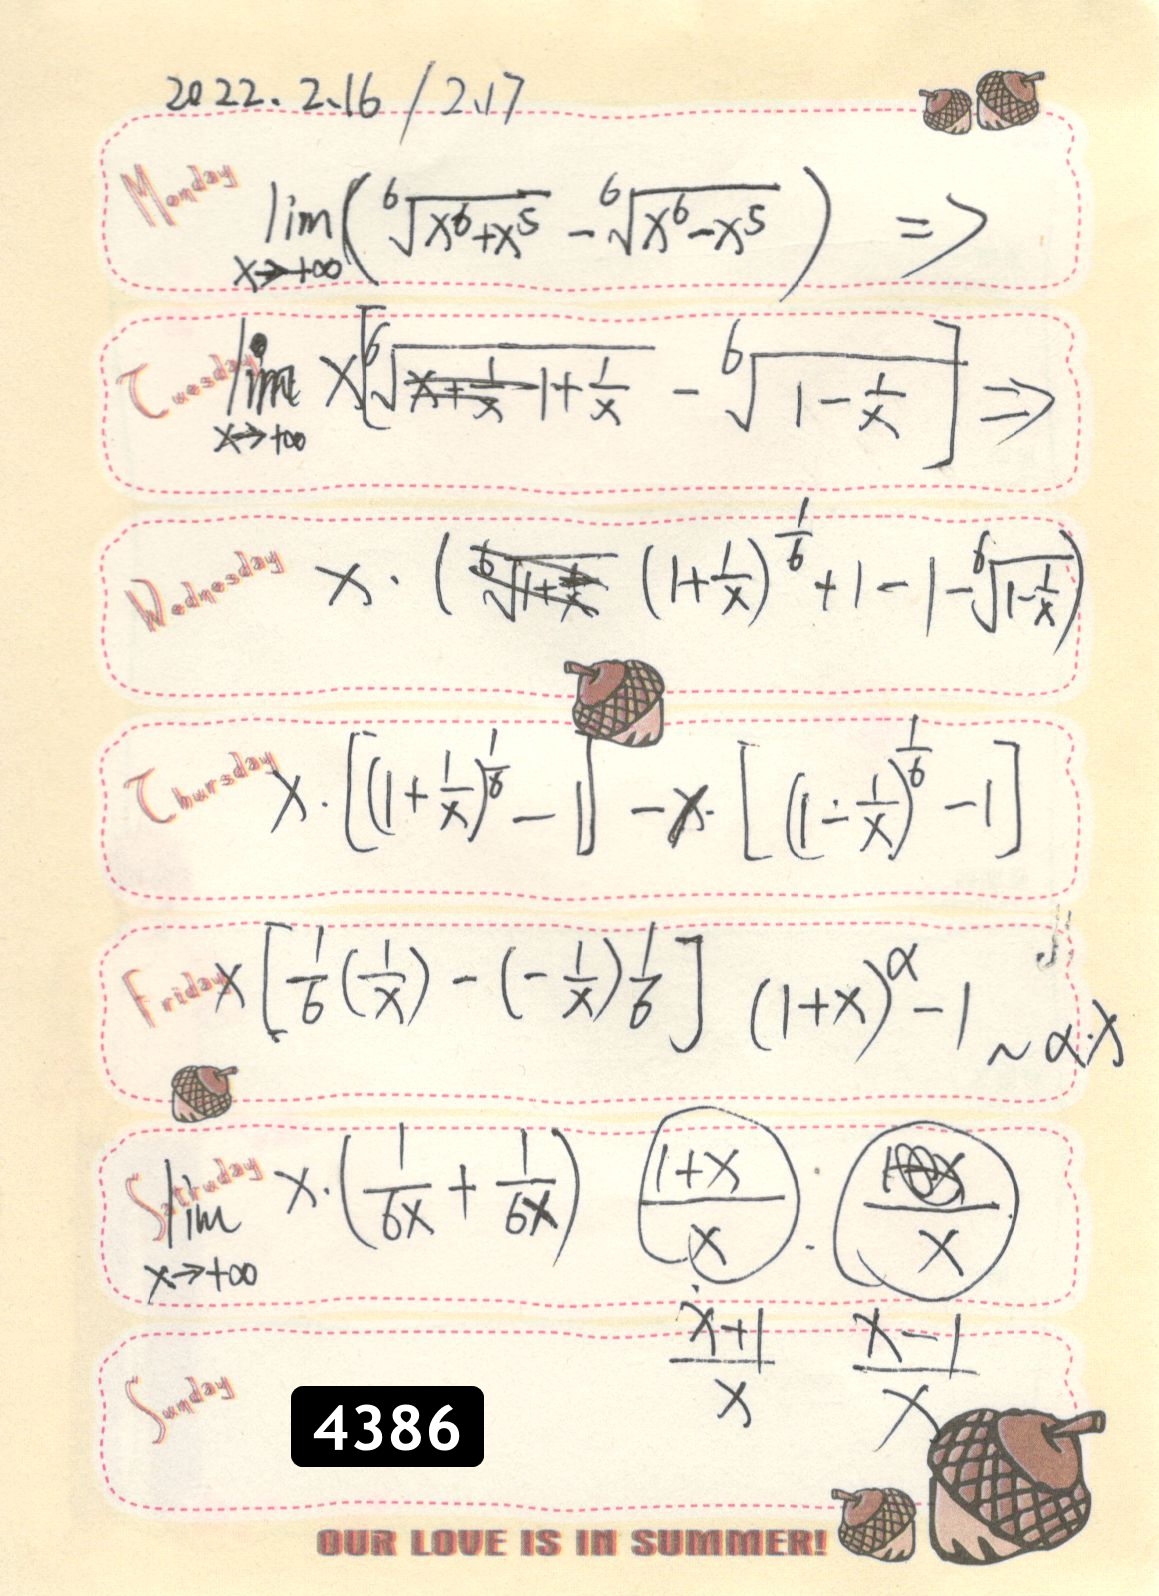 2022. 2.16 / 2.17
Monday
lim x→+∞ ( ⁶√(x⁶+x⁵) - ⁶√(x⁶-x⁵) ) =>
Tuesday
lim x→+∞ x[ ⁶√(1+1/x) - ⁶√(1-1/x) ] =>
Wednesday
x · ( (1+1/x)^(1/6) + 1 - 1 - ⁶√(1-1/x) )
Thursday
x · [(1+1/x)^(1/6) - 1] - x · [(1-1/x)^(1/6) - 1]
Friday
x [ 1/6 (1/x) - (-1/x) 1/6 ] (1+x)^α - 1 ~ α·x
Saturday
lim x→+∞ x · ( 1/6x + 1/6x ) (1+x)/x : /x
(x+1)/x (x-1)/x
Sunday
4386
OUR LOVE IS IN SUMMER!